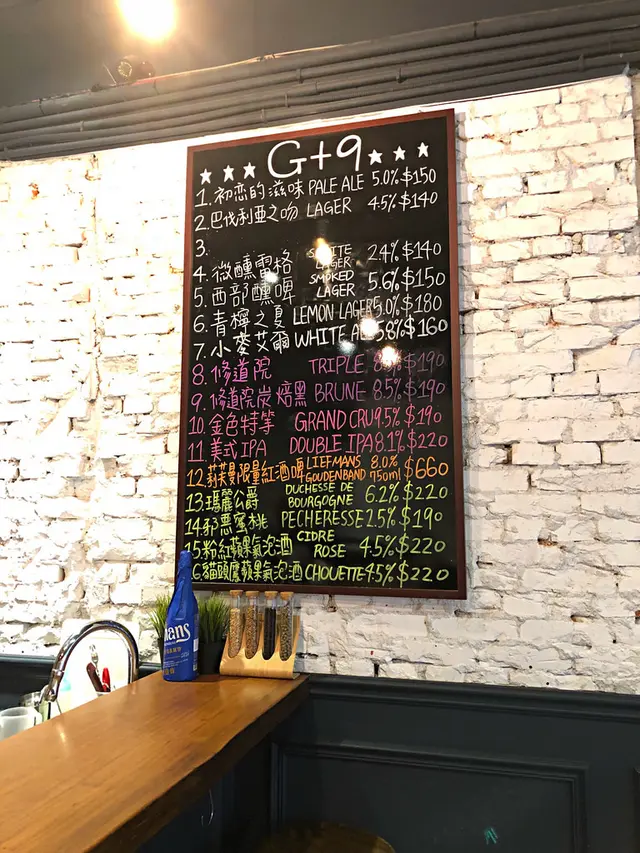 ★★★ G+9 ★★★
1. 初恋的滋味 PALE ALE 5.0% $150
2. 巴伐利亞之吻 LAGER 4.5% $140
3.
4. 微醺雷格 LAGER 2.4% $140
5. 西部醺啤 SMOKED LAGER 5.6% $150
6. 青檸之夏 LEMON LAGER 5.0% $180
7. 小麥艾爾 WHITE ALE 5.8% $160
8. 修道院 TRIPLE $190
9. 修道院炭焙黑 BRUNE 8.5% $190
10. 金色特等 GRAND CRU 9.5% $190
11. 美式IPA DOUBLE IPA 8.1% $220
12. 莉芙曼限量紅酒啤 LIEFMANS GOUDENBAND 8.0% 750ml $660
13. 瑪麗公爵 DUCHESSE DE BOURGOGNE 6.2% $220
14. 邪惡蜜桃 PECHERESSE 2.5% $190
15. 粉紅蘋果氣泡酒 CIDRE ROSE 4.5% $220
貓頭鷹蘋果氣泡酒 CHOUETTE 4.5% $220